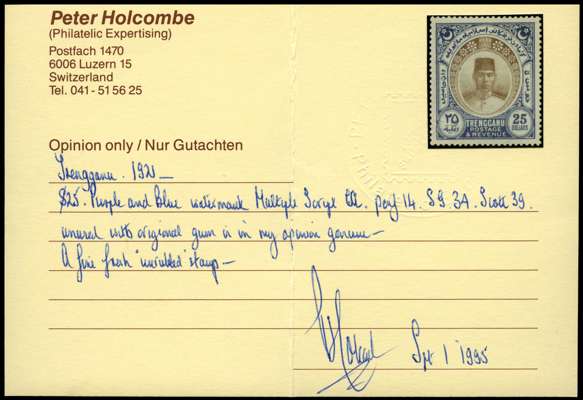 Peter Holcombe
(Philatelic Expertising)
Postfach 1470
6006 Luzern 15
Switzerland
Tel. 041 - 51 56 25
٢٥
25
DOLLARS
TRENGGANU
POSTAGE
& REVENUE
Opinion only / Nur Gutachten
Trengganu. 1921 —
$25. Purple and Blue watermark Multiple Script CA. perf 14. SG. 34. Scott 39.
unused with original gum is in my opinion genuine —
A fine fresh "unrubbed" stamp —
Sept 1 1995